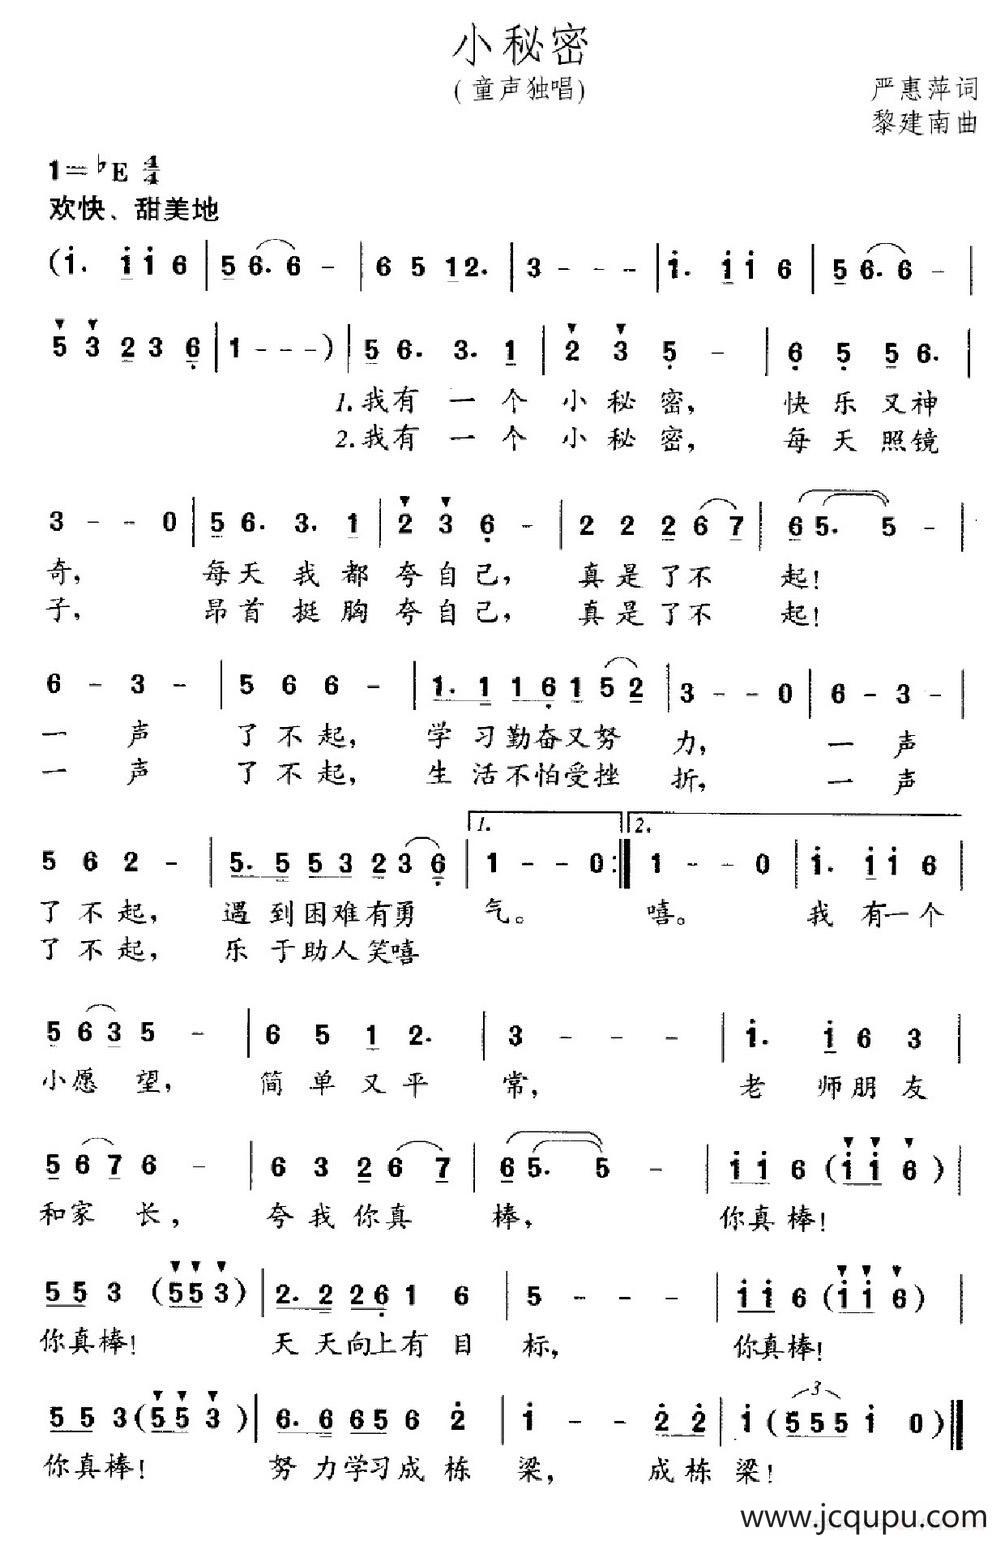 小秘密
(童声独唱)
严惠萍词
黎建南曲
1=♭E 4/4
欢快、甜美地
(i. i i 6 | 5 6. 6 - | 6 5 1 2. | 3 - - - | i. i i 6 | 5 6. 6 - |
5 3 2 3 6 | 1 - - - ) | 5 6. 3. 1 | 2 3 5 - | 6 5 5 6. |
1.我有 一 个 小 秘 密, 快 乐 又神
2.我有 一 个 小 秘 密, 每 天 照镜
3 - - 0 | 5 6. 3. 1 | 2 3 6 - | 2 2 2 6 7 | 6 5. 5 - |
奇, 每天 我 都 夸 自 己, 真 是 了 不 起!
子, 昂首 挺 胸 夸 自 己, 真 是 了 不 起!
6 - 3 - | 5 6 6 - | 1. 1 1 6 1 5 2 | 3 - - 0 | 6 - 3 - |
一 声 了 不 起, 学 习勤奋又努 力, 一 声
一 声 了 不 起, 生 活不怕受挫 折, 一 声
1. 2.
5 6 2 - | 5. 5 5 3 2 3 6 | 1 - - 0 :| 1 - - 0 | i. i i 6 |
了 不 起, 遇 到困难有勇 气。 嘻。 我 有一个
了 不 起, 乐 于助人笑嘻
5 6 3 5 - | 6 5 1 2. | 3 - - - | i. i 6 3 |
小愿 望, 简 单 又 平 常, 老 师朋 友
5 6 7 6 - | 6 3 2 6 7 | 6 5. 5 - | i i 6 (i i 6) |
和家 长, 夸 我 你真 棒, 你真棒!
5 5 3 (5 5 3) | 2. 2 2 6 1 6 | 5 - - - | i i 6 (i i 6) |
你真棒! 天 天向上有 目 标, 你真棒!
3
5 5 3 (5 5 3) | 6. 6 6 5 6 2 | i - - 2 2 | i (5 5 5 i 0) ‖
你真棒! 努 力学习成 栋 梁, 成 栋 梁!
www.jcqupu.com